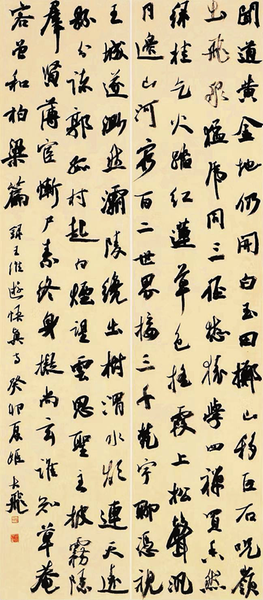 聞道黃金地仍開白玉田擲山移巨石呪嶺
出飛泉猛虎同三徑愁猿學四禪買香然
綠桂乞火踏紅蓮草色搖霞上松聲汎
月邊山河窮百二世界接三千梵宇聊憑視
王城遂渺然灞陵纔出樹渭水欲連天遠
縣分諸郭孤村起白煙望雲思聖主披霧隱
羣賢薄宦慚尸素終身擬尚玄誰知草菴
客曾和柏梁篇 錄王維遊悟真寺癸卯夏姬大飛